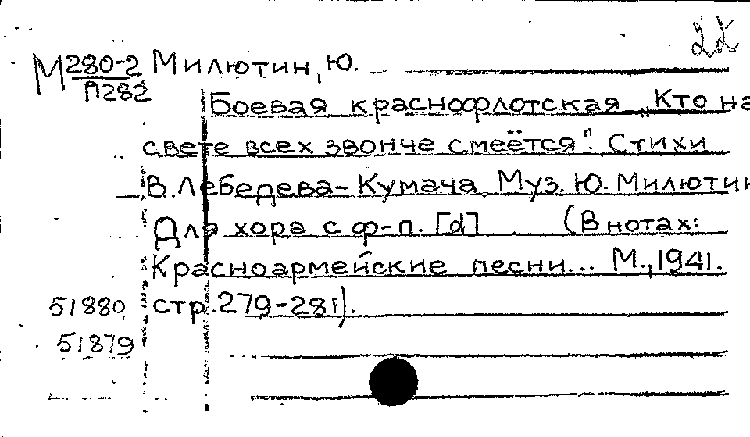 22
М 280-2 Милютин, Ю.
П282
Боевая краснофлотская „Кто на
свете всех звонче смеётся". Стихи
В. Лебедева-Кумача. Муз. Ю. Милютин
Для хора с ф-п. [d] (В нотах:
Красноармейские песни... М., 1941.
51880 стр. 279-281).
51879